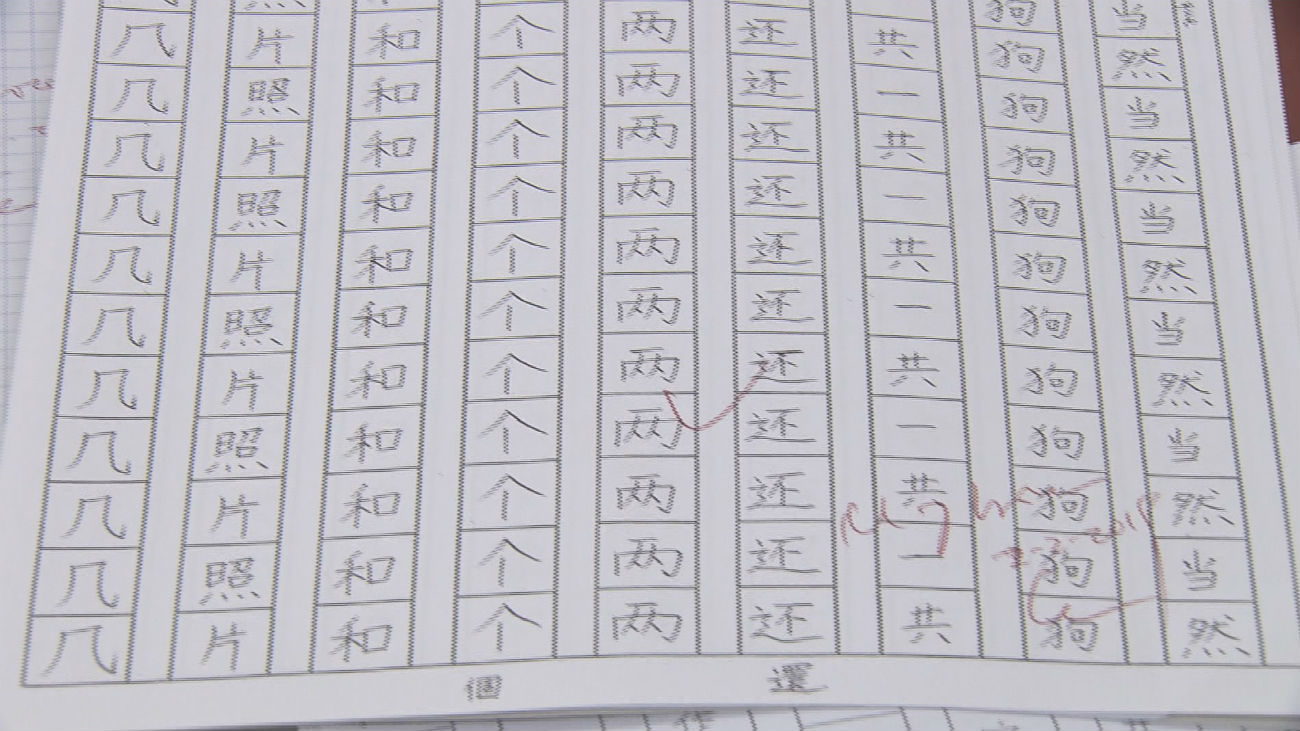 几几几几几几几几几几几
照片照片照片照片照片照片
和和和和和和和和和和和
个个个个个个个个个个个
两两两两两两两两两两两
还还还还还还还还还还还
共一共一共一共一共一共
狗狗狗狗狗狗狗狗狗狗狗狗
当然当然当然当然当然当然
個 還